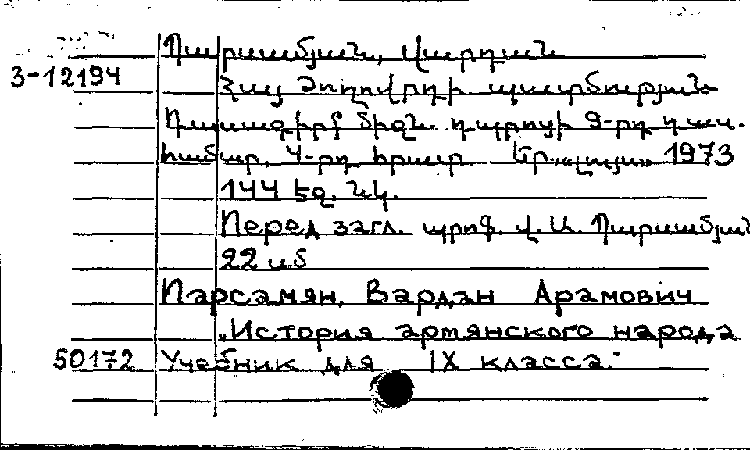 Պարսամյան, Վարդան
3-12194
Հայ ժողովրդի պատմություն
Դասագիրք միջն. դպրոցի 9-րդ դաս.
համար. 4-րդ հրատ. Եր. «Լույս» 1973
144 էջ. նկ.
Перед загл. պրոֆ. Վ. Ա. Պարսամյան
22 սմ
Парсамян, Вардан Арамович
"История армянского народа
50172 Учебник для IX класса."